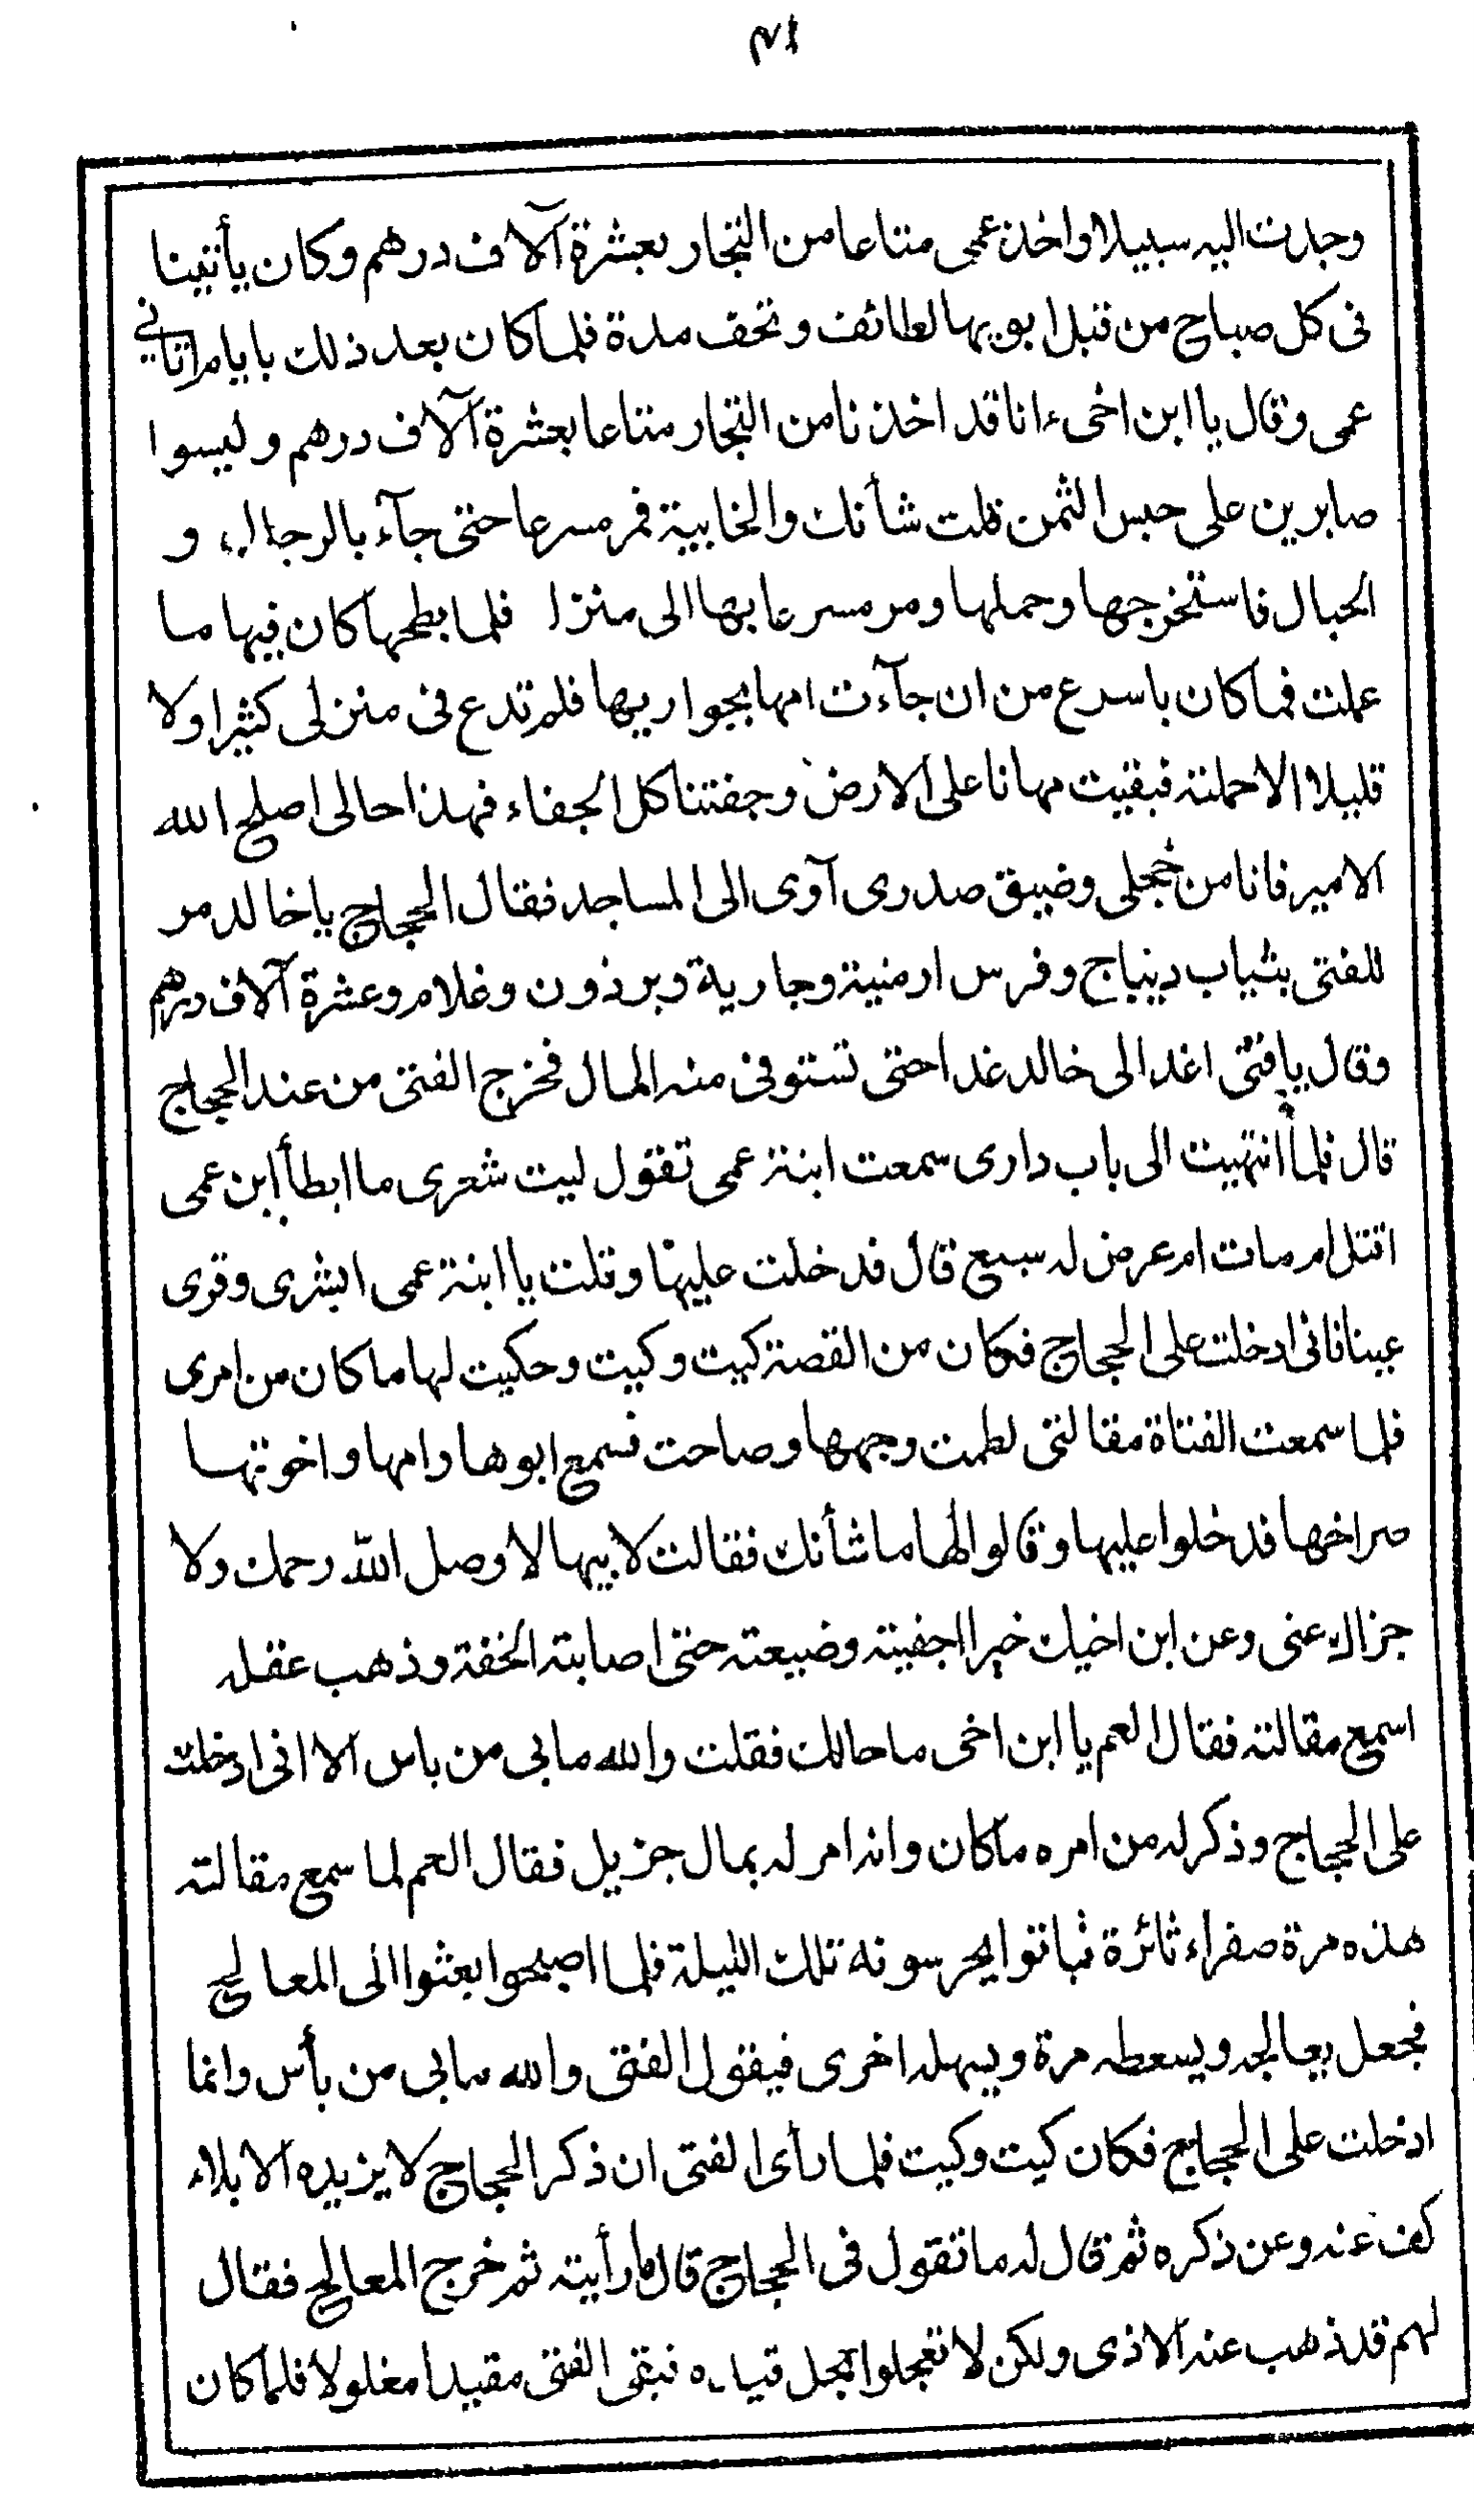 ٣١
وجدت اليه سبيلا واخذ عمى متاعا من التجار بعشرة آلاف درهم وكان يأتينا
فى كل صباح من قبل ابويها لطائف وتحف مدة فلما كان بعد ذلك بايام اتاني
عمى وقال يا ابن اخىء انا قد اخذنا من التجار متاعا بعشرة آلاف درهم وليسوا
صابرين على حبس الثمن قلت شأنك والخابية فمر مسرعا حتى جآء بالرجال و
الحبال فاستخرجها وحملها ومر مسرعا بها الى منزا فلما بطحها كان فيها ما
علمت فما كان باسرع من ان جآءت امها بجواريها فلم تدع فى منزلى كثيرا ولا
قليلا الا حملته فبقيت مهانا على الارض وجفتنا كل الجفاء فهذا حالى اصلح الله
الامير فانا من خجلى وضيق صدرى آوى الى المساجد فقال الحجاج يا خالد مر
للفتى بثياب ديباج وفرس ارمنية وجارية وبرذون وغلام وعشرة آلاف درهم
وقال يا فتى اغد الى خالد غدا حتى تستوفى منه المال فخرج الفتى من عند الحجاج
قال فلما انتهيت الى باب دارى سمعت ابنة عمى تقول ليت شعرى ما ابطأ ابن عمى
اقتل ام مات ام عرض له سبع قال فدخلت عليها وقلت يا ابنة عمى ابشرى وقرى
عينا فانى ادخلت على الحجاج فكان من القصة كيت وكيت وحكيت لها ما كان من امرى
فلما سمعت الفتاة مقالتى لطمت وجهها وصاحت فسمع ابوها وامها واخوتها
صراخها فدخلوا عليها وقالوا لها ما شأنك فقالت لابيها لا وصل الله رحمك ولا
جزاك عنى وعن ابن اخيك خيرا اجفيته وضيعته حتى اصابته الخفة وذهب عقله
اسمع مقالته فقال العم يا ابن اخى ما حالك فقلت والله ما بى من باس الا انى ادخلت
على الحجاج وذكر له من امره ما كان وانه امر له بمال جزيل فقال العم لما سمع مقالته
هذه مرة صفراء ثائرة فباتوا يحرسونه تلك الليلة فلما اصبحوا بعثوا الى المعالج
فجعل يعالجه ويسعطه مرة ويسهله اخرى فيقول الفتى والله ما بى من بأس وانما
ادخلت على الحجاج فكان كيت وكيت فلما رأى الفتى ان ذكر الحجاج لا يزيده الا بلاء
كف عنه وعن ذكره ثم قال له ما تقول فى الحجاج قال ما رأيته ثم خرج المعالج فقال
لهم قد ذهب عنه الاذى ولكن لا تعجلوا بحل قياده فبقى الفتى مقيدا مغلولا فلما كان